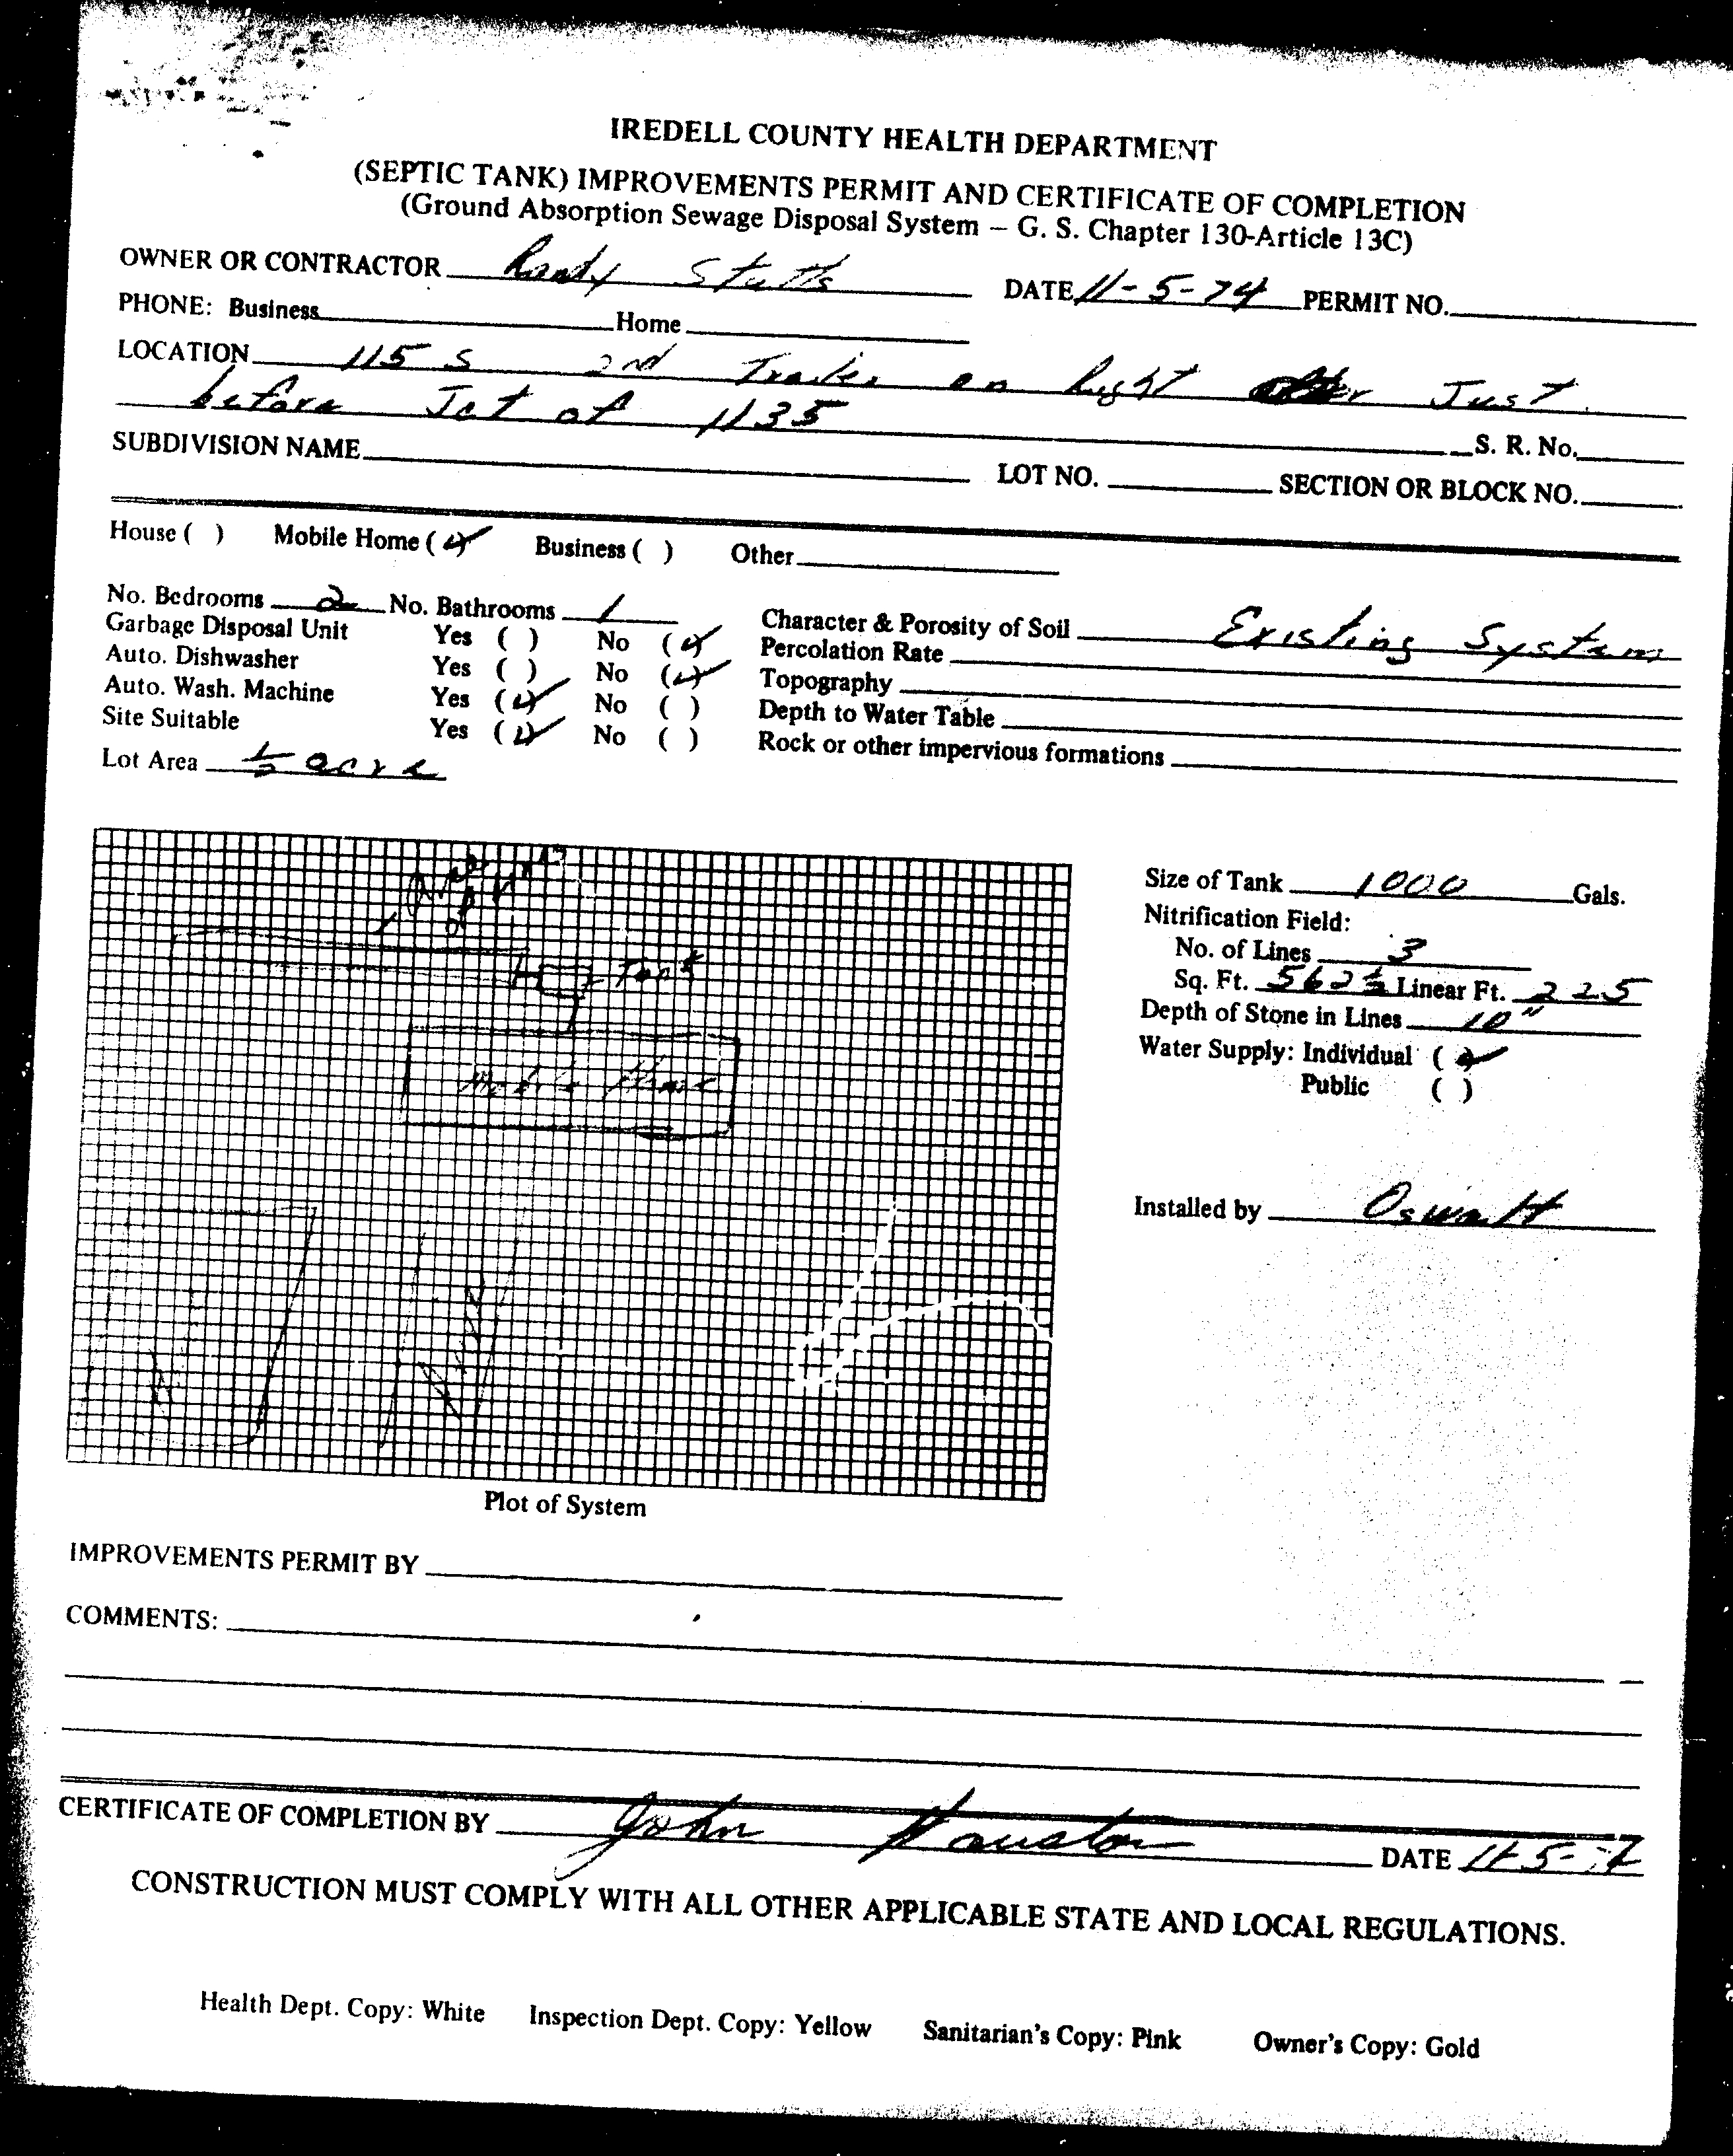 IREDELL COUNTY HEALTH DEPARTMENT
(SEPTIC TANK) IMPROVEMENTS PERMIT AND CERTIFICATE OF COMPLETION
(Ground Absorption Sewage Disposal System – G. S. Chapter 130-Article 13C)
OWNER OR CONTRACTOR Randy Stutts DATE 11-5-74 PERMIT NO.
PHONE: Business Home
LOCATION 115 S 2nd Trailer on Right Just
before Jct of 1135 S. R. No.
SUBDIVISION NAME LOT NO. SECTION OR BLOCK NO.
House ( ) Mobile Home (✓) Business ( ) Other
No. Bedrooms 2 No. Bathrooms 1
Garbage Disposal Unit Yes ( ) No (✓)
Auto. Dishwasher Yes ( ) No (✓)
Auto. Wash. Machine Yes (✓) No ( )
Site Suitable Yes (✓) No ( )
Lot Area ½ acre
Character & Porosity of Soil Existing System
Percolation Rate
Topography
Depth to Water Table
Rock or other impervious formations
Tank
Mobile Home
Plot of System
Size of Tank 1000 Gals.
Nitrification Field:
No. of Lines 3
Sq. Ft. 562½ Linear Ft. 225
Depth of Stone in Lines 10"
Water Supply: Individual (✓)
Public ( )
Installed by Oswalt
IMPROVEMENTS PERMIT BY
COMMENTS:
CERTIFICATE OF COMPLETION BY John Houston DATE 11-5-74
CONSTRUCTION MUST COMPLY WITH ALL OTHER APPLICABLE STATE AND LOCAL REGULATIONS.
Health Dept. Copy: White Inspection Dept. Copy: Yellow Sanitarian's Copy: Pink Owner's Copy: Gold